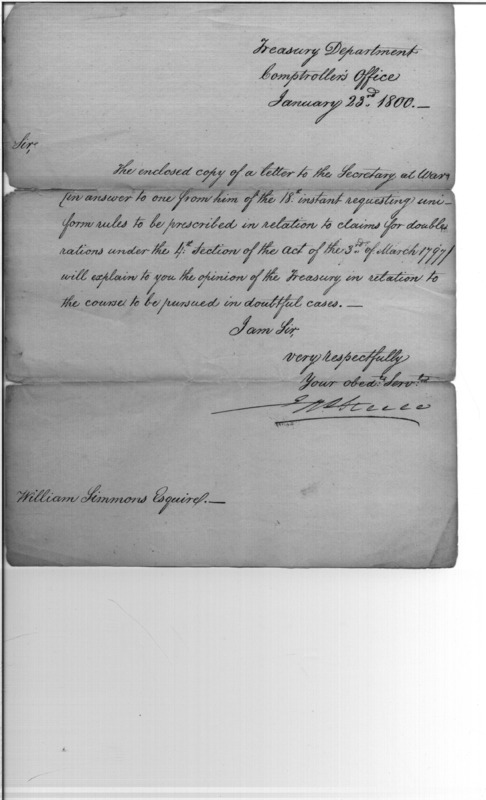 Treasury Department
Comptroller's Office
January 23rd 1800.—
Sir,
The enclosed copy of a letter to the Secretary at War
(in answer to one from him of the 18th instant requesting uni-
form rules to be prescribed in relation to claims for double
rations under the 4th Section of the Act of the 3rd of March 1797)
will explain to you the opinion of the Treasury in relation to
the course to be pursued in doubtful cases.—
I am Sir,
very respectfully
Your obedt Servant
William Simmons Esquire.—